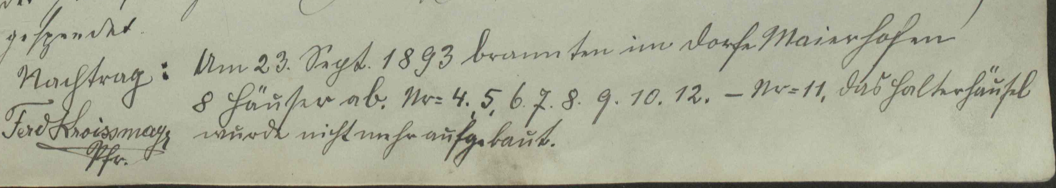 gespendet.
Nachtrag: Am 23. Sept. 1893 brannten im Dorfe Maierhofen
8 Häuser ab. Nr= 4. 5. 6. 7. 8. 9. 10. 12. – Nr= 11, das Halterhäusel
wurde nicht mehr aufgebaut.
Ferd Kroissmayr
Pfr.